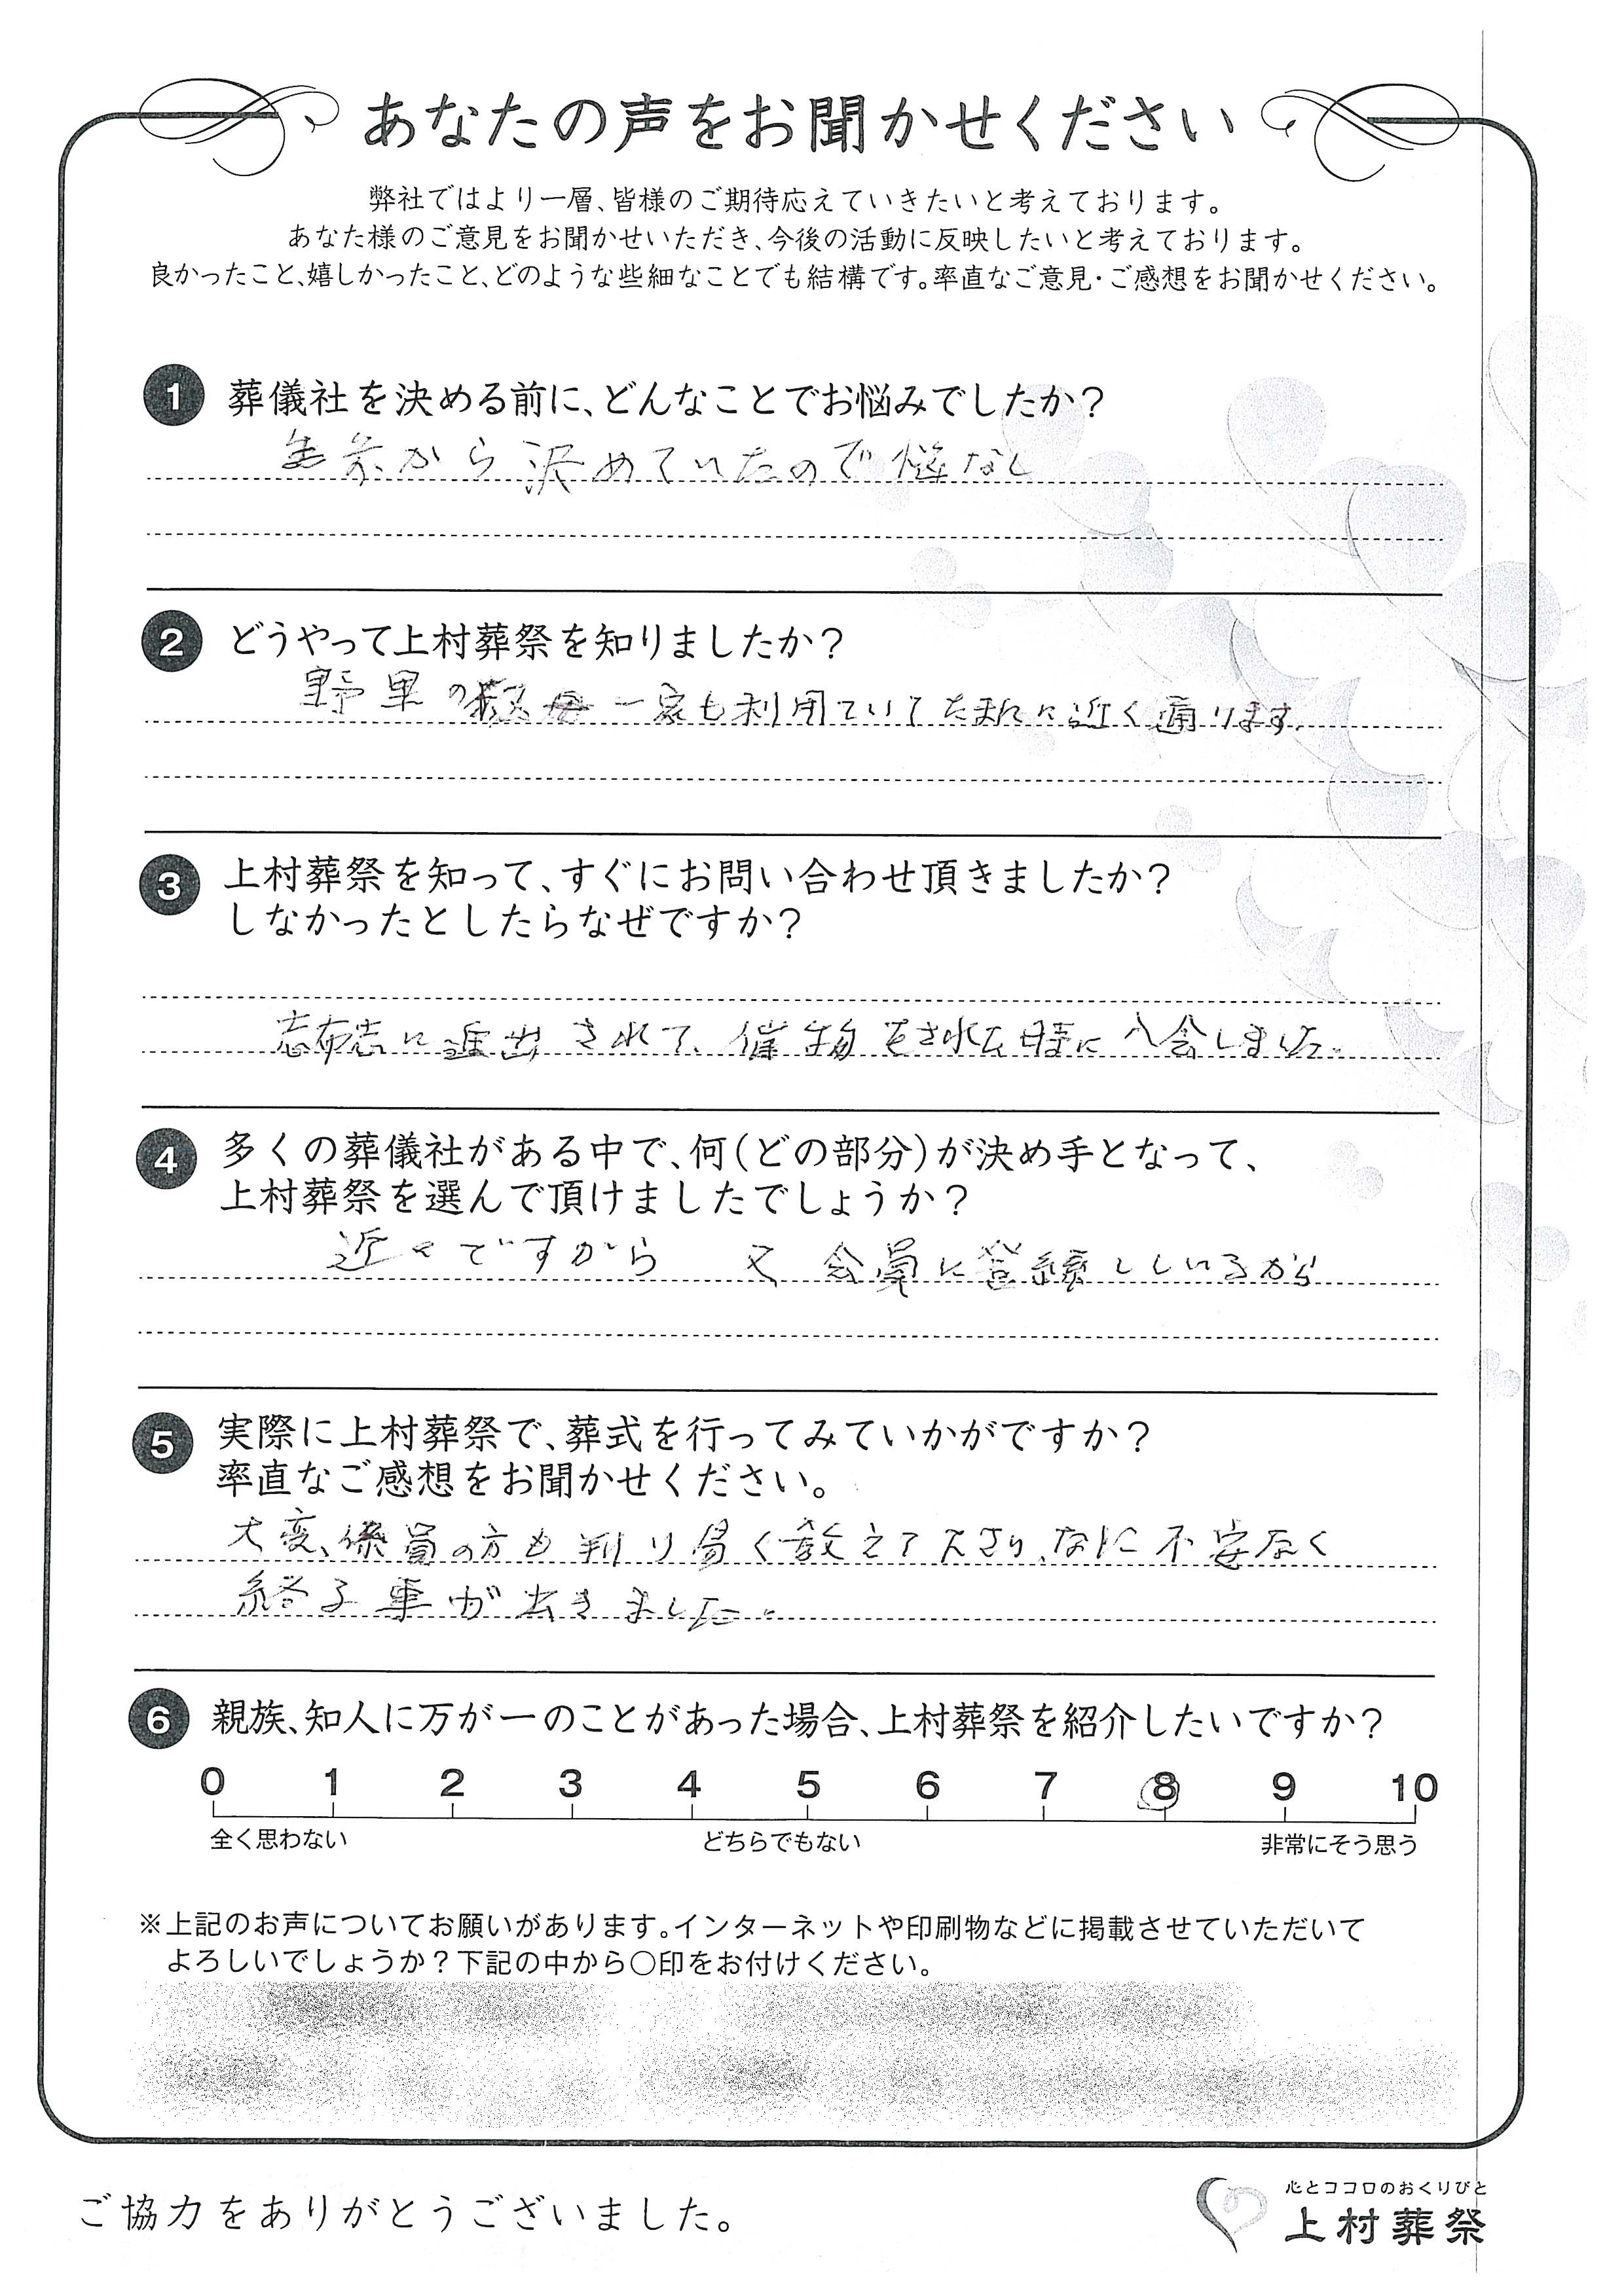 あなたの声をお聞かせください
弊社ではより一層、皆様のご期待応えていきたいと考えております。
あなた様のご意見をお聞かせいただき、今後の活動に反映したいと考えております。
良かったこと、嬉しかったこと、どのような些細なことでも結構です。率直なご意見・ご感想をお聞かせください。
1 葬儀社を決める前に、どんなことでお悩みでしたか？
から決めていたので悩なし
2 どうやって上村葬祭を知りましたか？
野里の叔母一家も利用ていてたまに近く通ります。
3 上村葬祭を知って、すぐにお問い合わせ頂きましたか？
しなかったとしたらなぜですか？
志布志に進出されて、催物をされた時に入会しました。
4 多くの葬儀社がある中で、何（どの部分）が決め手となって、
上村葬祭を選んで頂けましたでしょうか？
近くですから 又 会員に登録しているから
5 実際に上村葬祭で、葬式を行ってみていかがですか？
率直なご感想をお聞かせください。
大変、係員の方も判り易く教えて下さり、なに不安なく
終る事が出きました。
6 親族、知人に万が一のことがあった場合、上村葬祭を紹介したいですか？
0 1 2 3 4 5 6 7 8 9 10
全く思わない どちらでもない 非常にそう思う
※上記のお声についてお願いがあります。インターネットや印刷物などに掲載させていただいて
よろしいでしょうか？下記の中から○印をお付けください。
ご協力をありがとうございました。
心とココロのおくりびと
上村葬祭